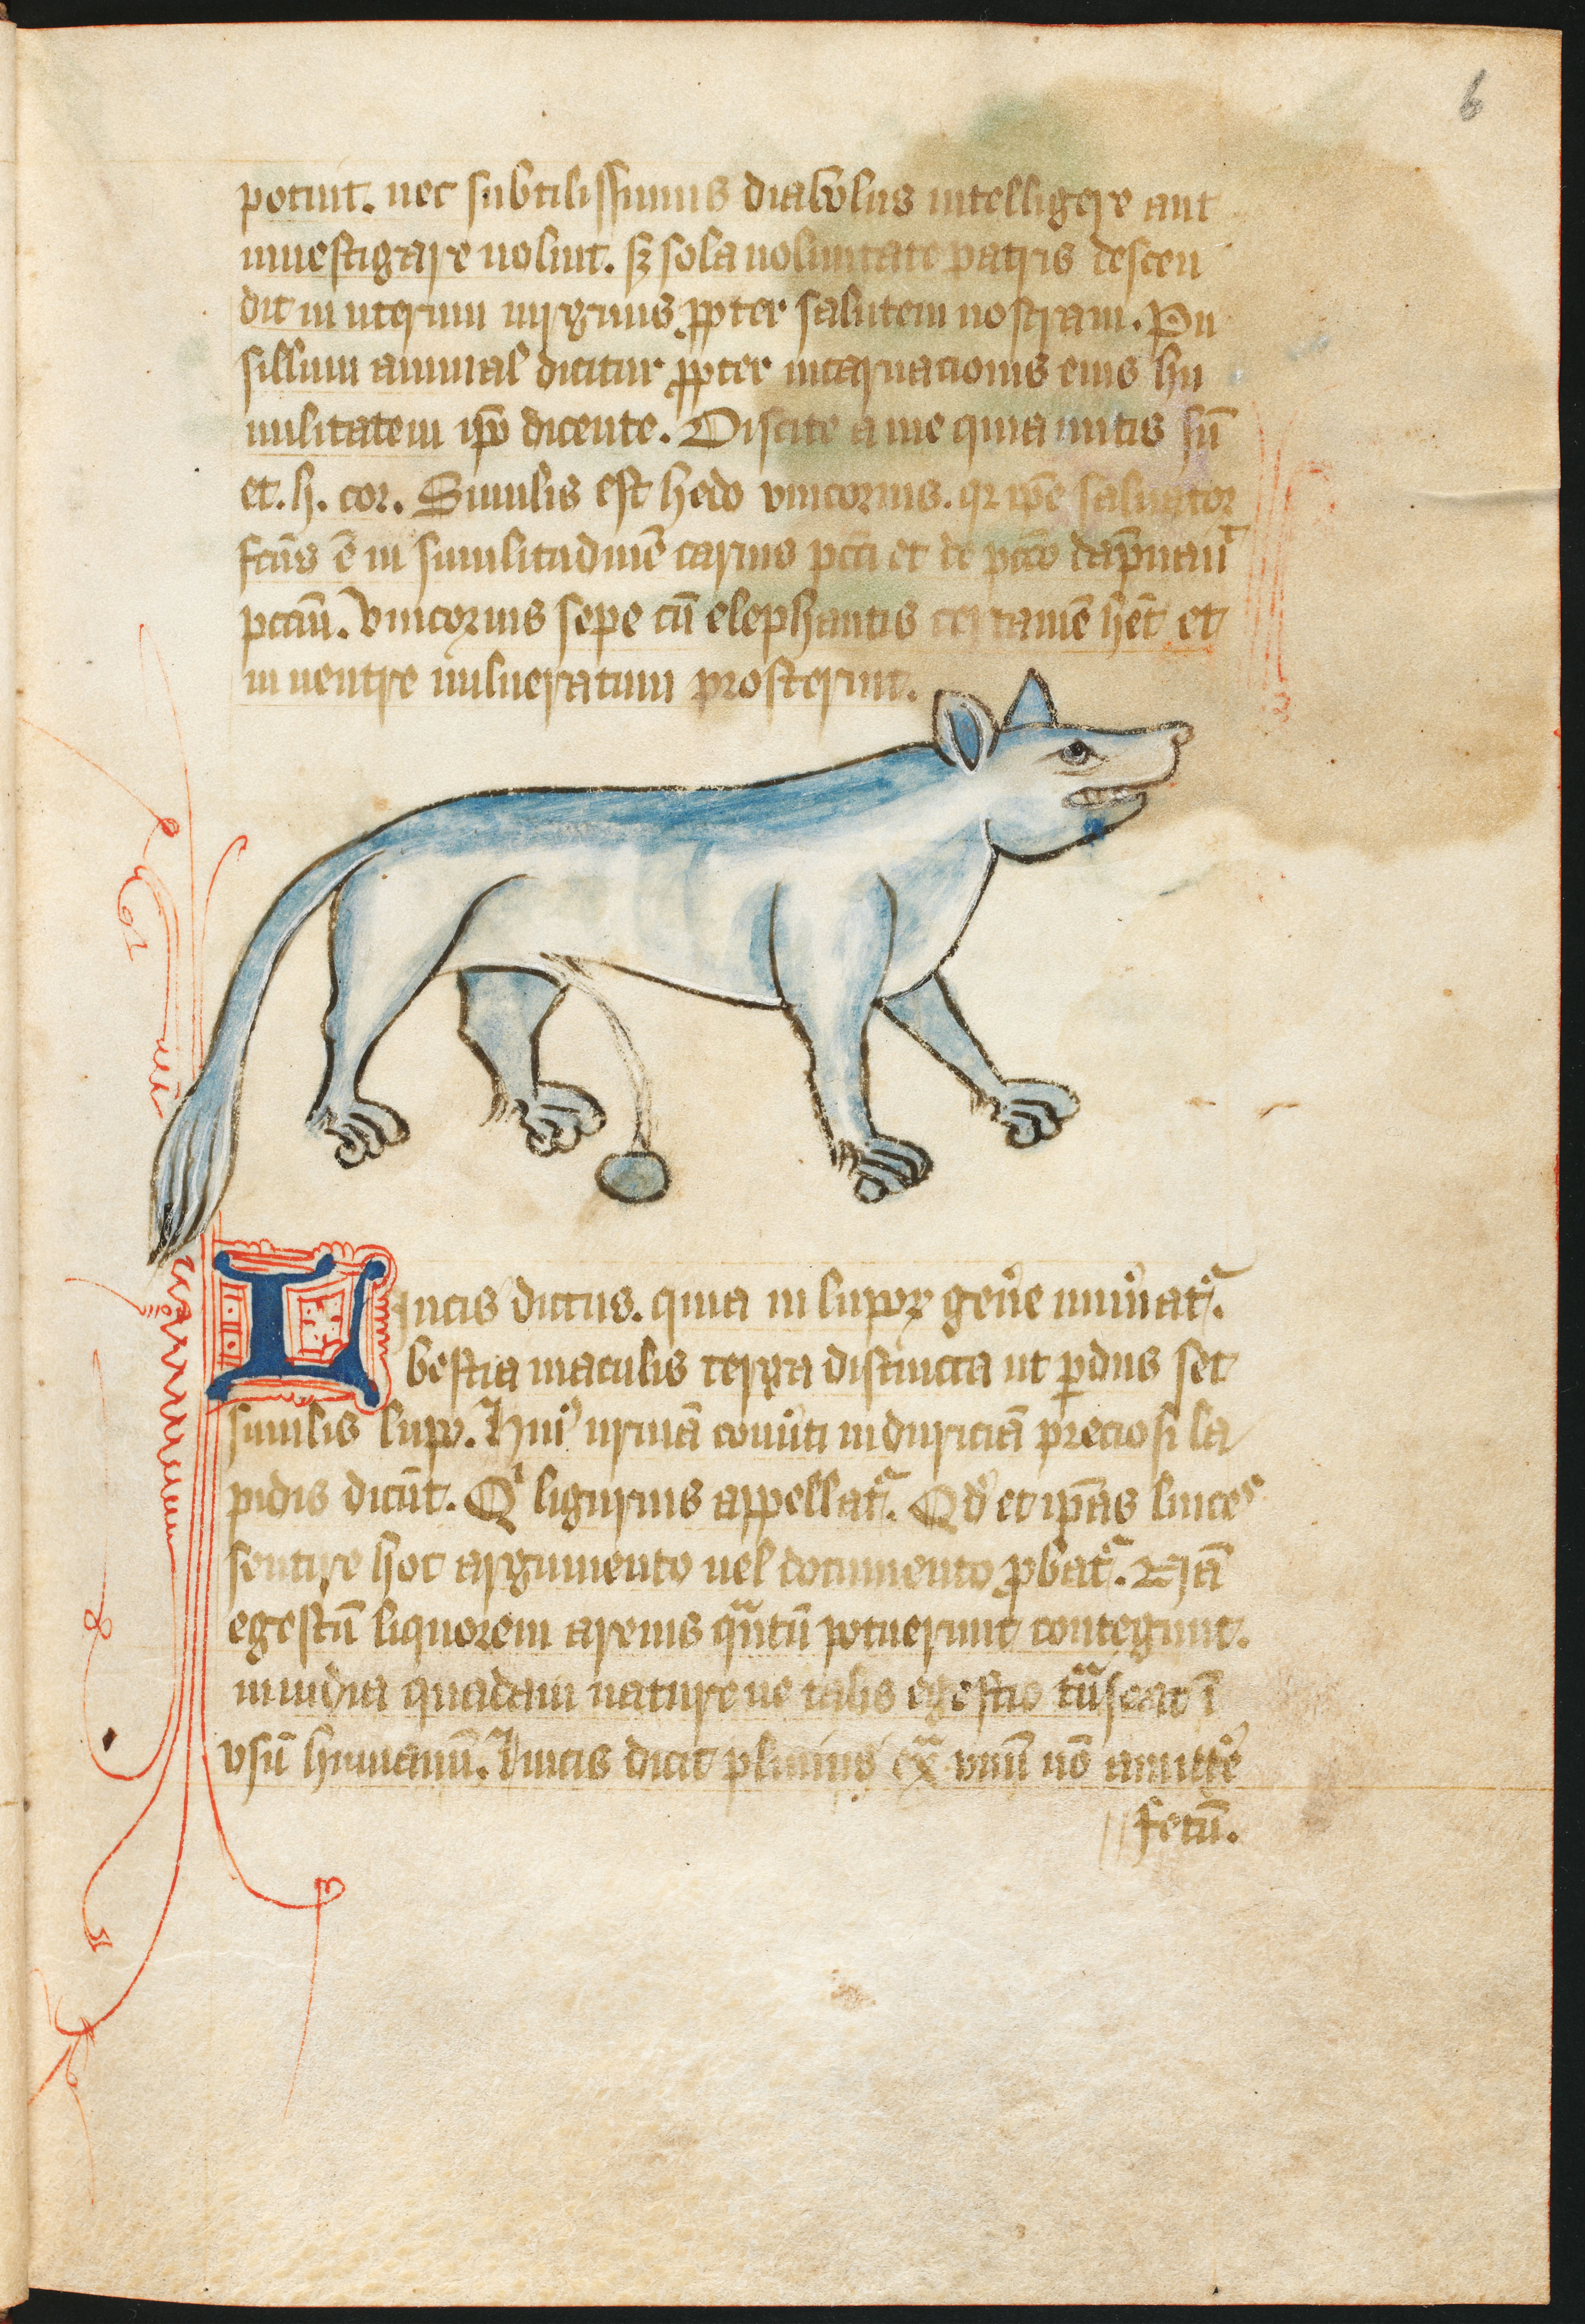 6
potuit. nec subtilissimus diabolus intelligere aut
inuestigare uoluit. sꝫ sola uoluntate patris descen
dit in uterum uirginis ꝓpter salutem nostram. Pu
sillum animal dicitur ꝓpter incarnacionis eius hu
militatem ip̄o dicente. Discite a me quia mitis sū
et. h. cor. Similis est hedo vnicornis. qr ip̄e saluator
fcūs ē in similitudinē carnis pcc̄i et de pcc̄o dāpnauͭ
pccm̄. Vnicornis sepe cū elephantis certamē hēt et
in uentre uulneratum prosternit.
Lincis dictus. quia in lupoꝝ gen̄e numͤatͬ.
bestia maculis terga distincta ut ꝑdus set
similis lupo. Huiꝰ urinā conuͭti in duriciā preciosi la
pidis dicūt. Qͥ ligurius appellatͬ. Qd̛ et ip̄as linces
sentire hoc argumento uel documento ꝓbatͬ. Nā
egestū liquorem arenis qͣntū potuerunt contegunt.
inuidia quadam nature ne talis egestio tͣnseat ī
vsū humanū. Lincis dicit plinius exͣ vnū nō amittͤe
fetū.